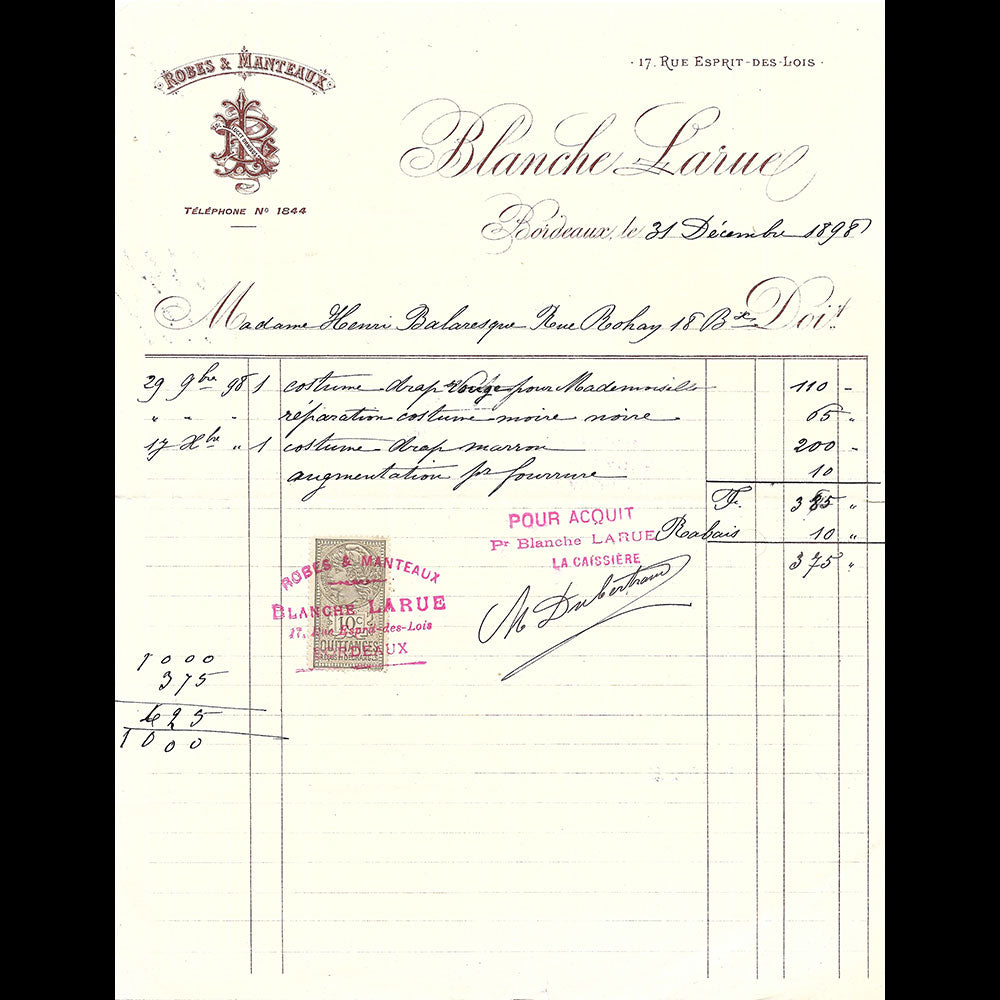 ROBES & MANTEAUX
· 17. RUE ESPRIT-DES-LOIS ·
Blanche Larue
TÉLÉPHONE Nº 1844
Bordeaux, le 31 Décembre 1898
Madame Henri Balaresque Rue Rohan 18 Bx Doit
29 9bre 98 1 costume drap rouge pour Mademoiselle 110 -
" " - réparation costume moire noire 65 "
17 Xbre " 1 costume drap marron 200 -
augmentation pr fourrure 10
F. 385 "
POUR ACQUIT
Pr Blanche LARUE Rabais 10 "
LA CAISSIÈRE 375 "
M Dubertrand
ROBES & MANTEAUX
BLANCHE LARUE
10c
17, Rue Esprit-des-Lois
QUITTANCES
BORDEAUX
1000
375
625
1000